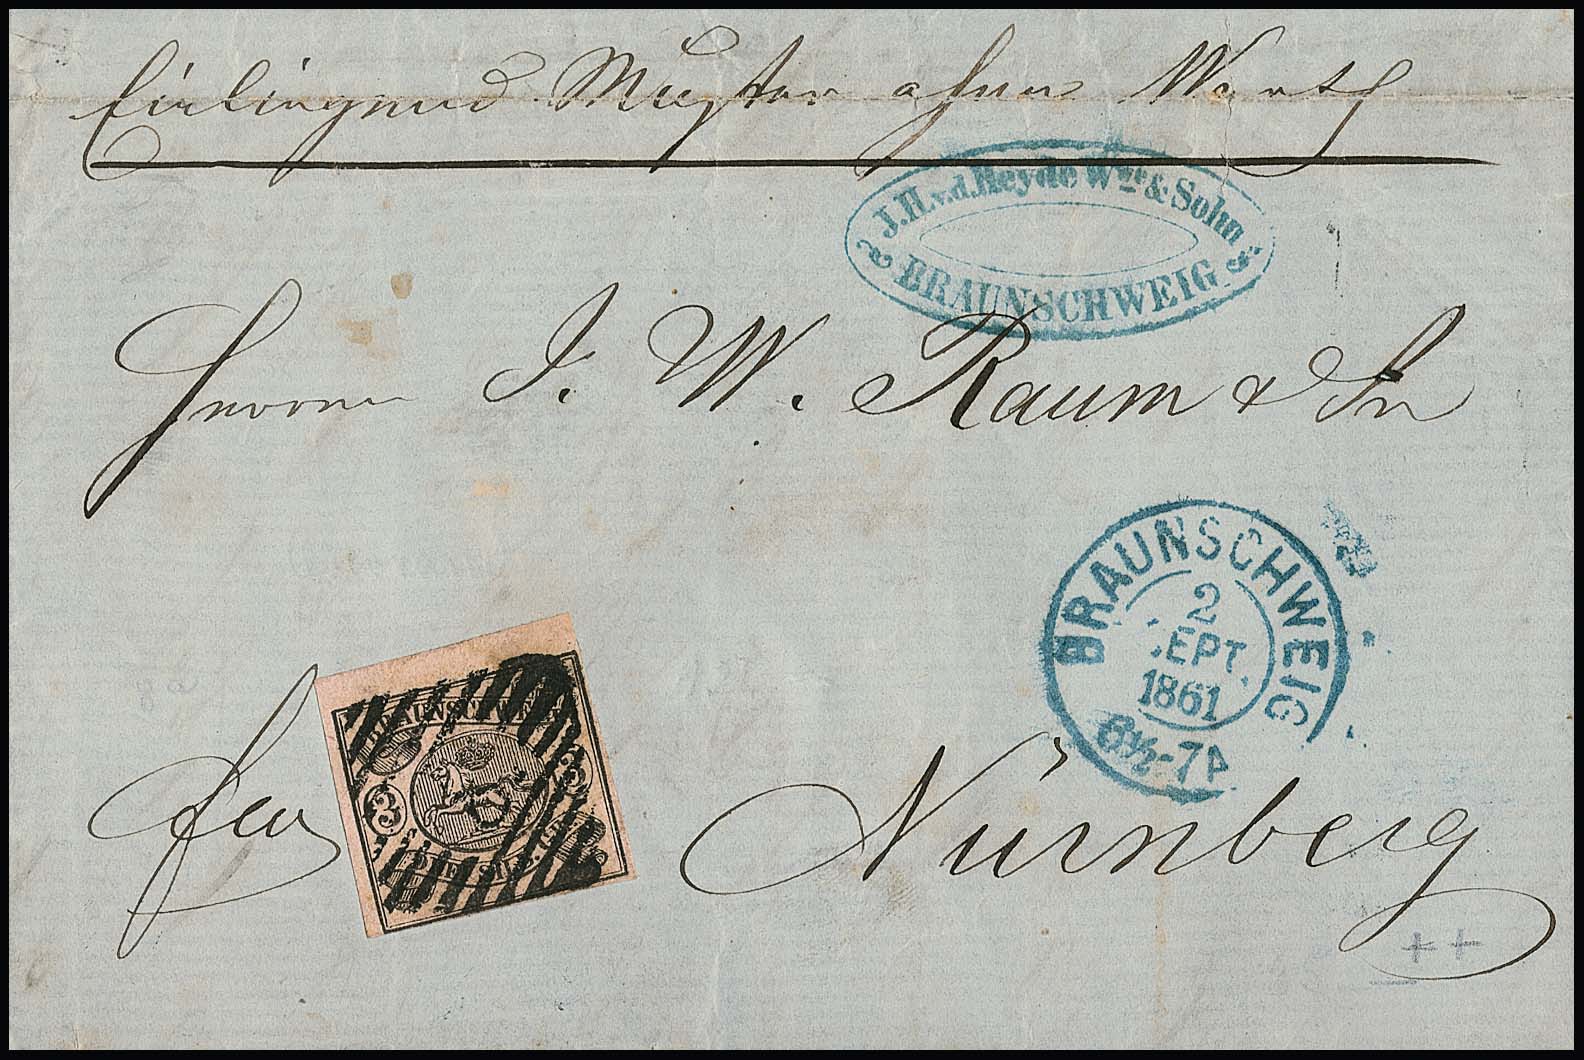 Einliegend Muster ohne Werth
J. H. v. d. Heyde Wwe & Sohn
BRAUNSCHWEIG
Herren J. W. Raum & Sn
BRAUNSCHWEIG
2
SEPT.
1861
6½-7
BRAUNSCHWEIG
3 3
SILB. GR.
fco
Nürnberg
++